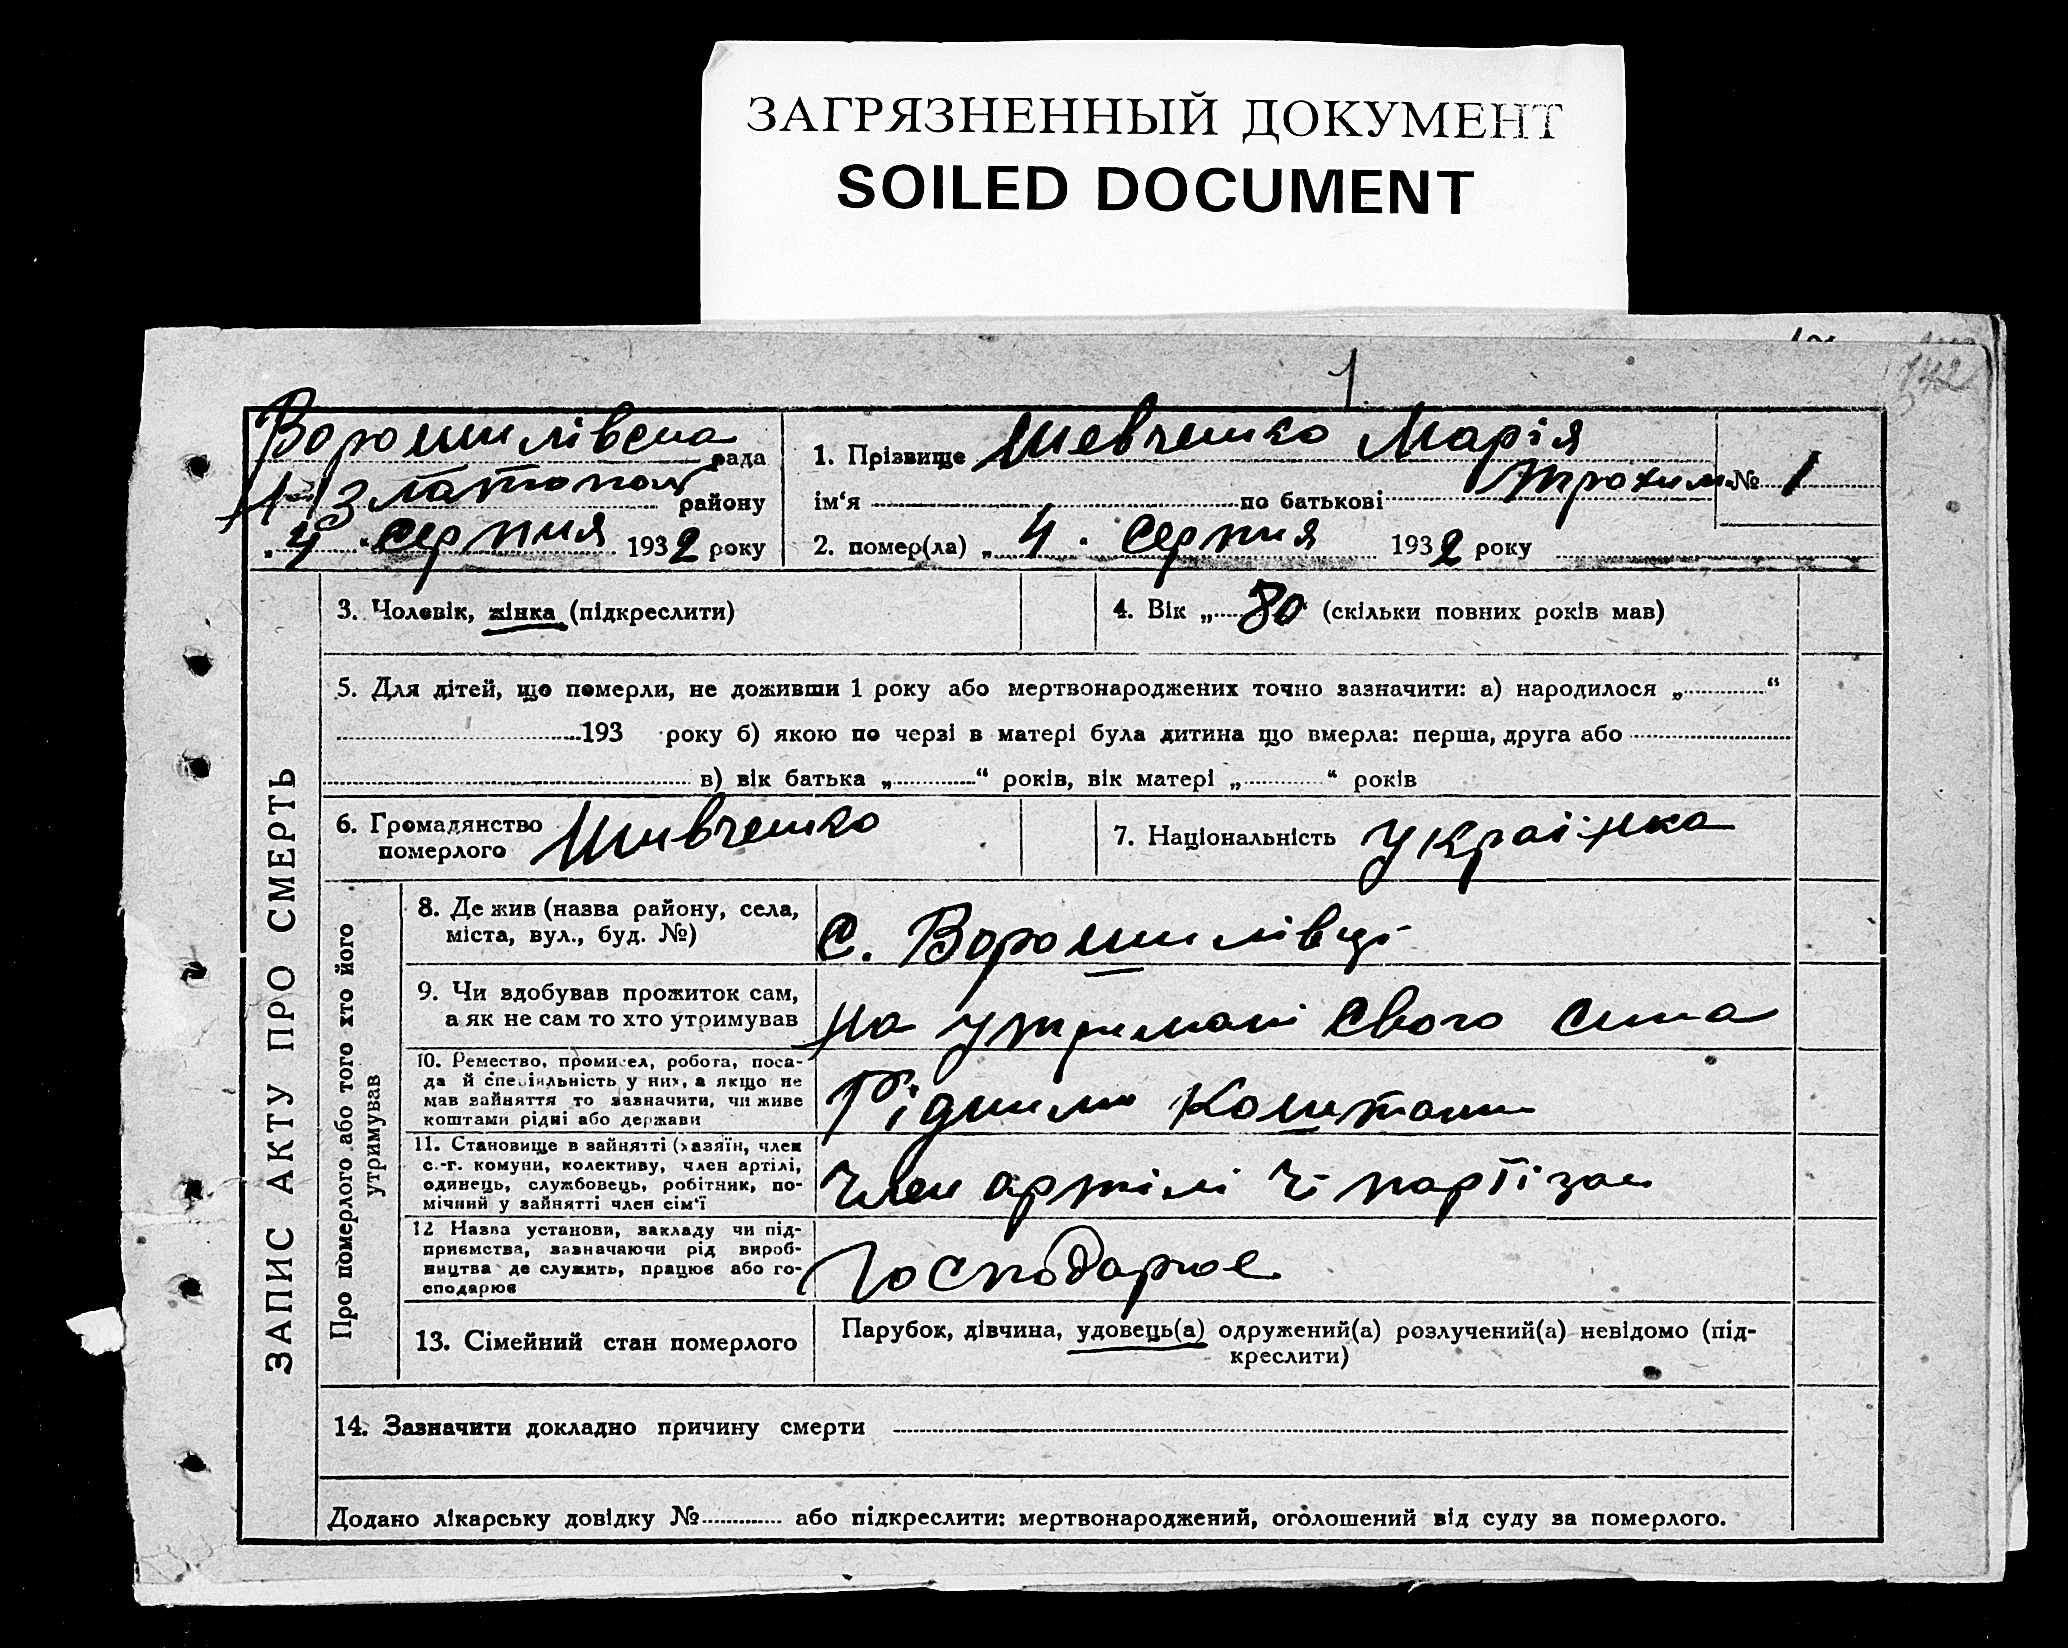 ЗАГРЯЗНЕННЫЙ ДОКУМЕНТ
SOILED DOCUMENT
1
142
Ворошилівська рада
Златопол району
"4" серпня 1932 року
1. Прізвище Шевченко Марія
ім'я по батькові Трохим. № 1
2. помер(ла) „4. серпня 1932 року
3. Чоловік, жінка (підкреслити)
4. Вік „ 80 (скільки повних років мав)
5. Для дітей, що померли, не доживши 1 року або мертвонароджених точно зазначити: а) народилося „ “
193 року б) якою по черзі в матері була дитина що вмерла: перша, друга або
в) вік батька „ “ років, вік матері „ “ років
6. Громадянство
померлого Шивченко
7. Національність Українка
ЗАПИС АКТУ ПРО СМЕРТЬ
Про померлого або того хто його
утримував
8. Де жив (назва району, села,
міста, вул., буд. №)
с. Ворошилівці
9. Чи здобував прожиток сам,
а як не сам то хто утримував
на утримані свого сина
10. Ремество, промисел, робота, поса-
да й спеціяльність у них, а якщо не
мав зайняття то зазначити, чи живе
коштами рідні або держави
Рідними коштами
11. Становище в зайнятті (хазяїн, член
с.-г. комуни, колективу, член артілі,
одинець, службовець, робітник, по-
мічний у зайнятті член сім'ї
Член артілі Ч партізан
12 Назва установи, закладу чи під-
приємства, зазначаючи рід вироб-
ництва де служить, працює або го-
сподарює
Господарює
13. Сімейний стан померлого
Парубок, дівчина, удовець(а) одружений(а) розлучений(а) невідомо (під-
креслити)
14. Зазначити докладно причину смерти
Додано лікарську довідку № або підкреслити: мертвонароджений, оголошений від суду за померлого.